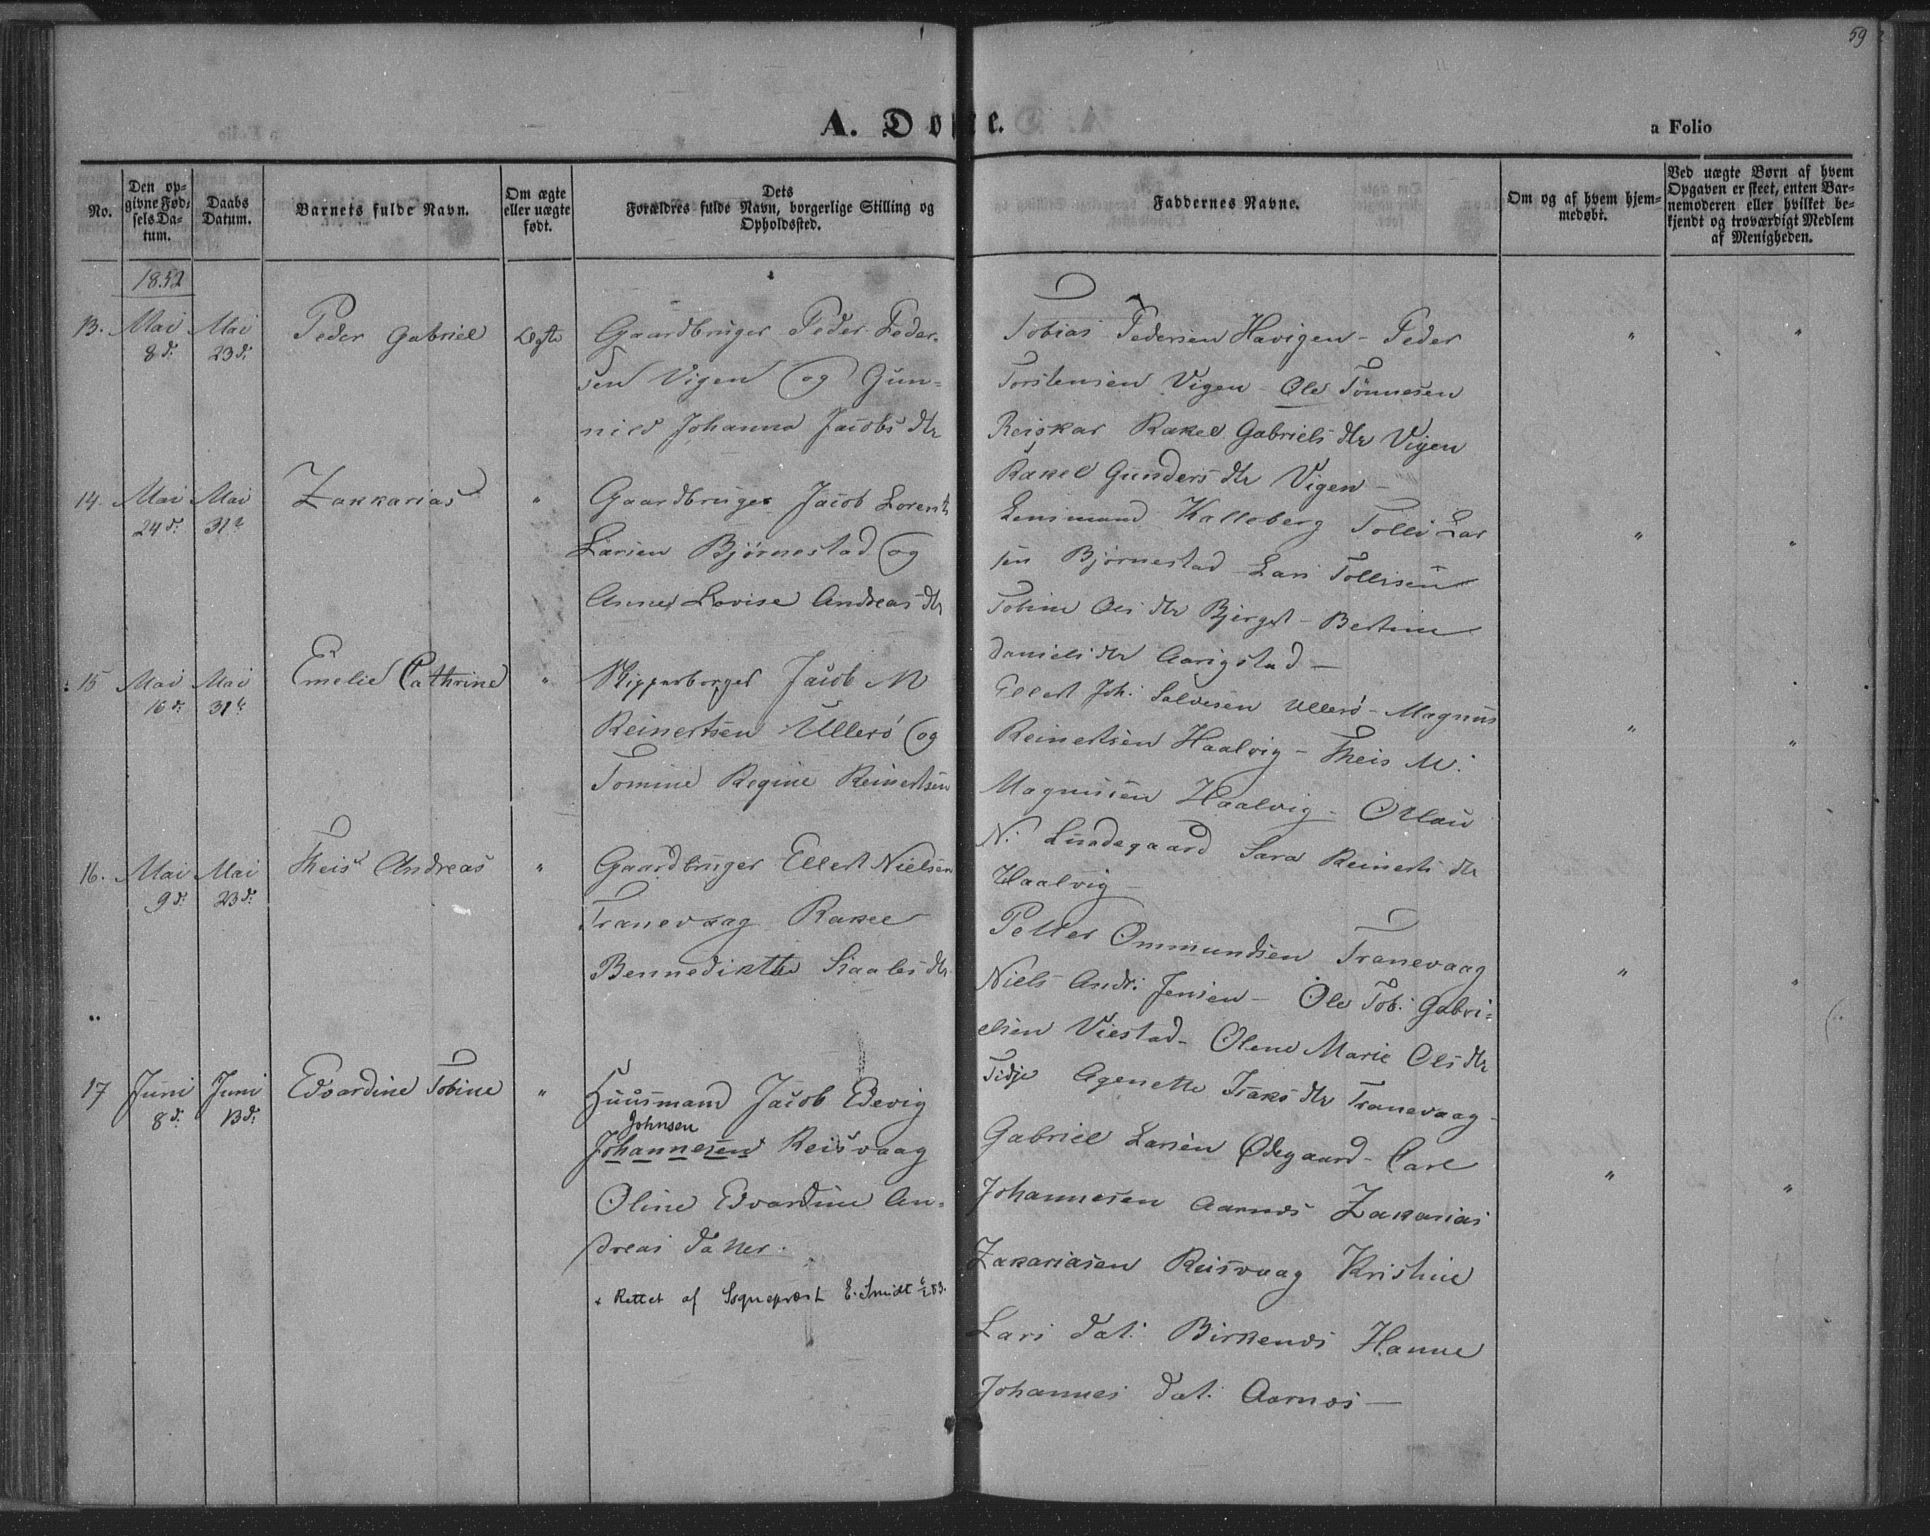 59
A. Døbte.
a Folio
No.
Den op-
givne Fød-
sels Da-
tum.
Daabs
Datum.
Barnets fulde Navn.
Om ægte
eller uægte
født.
Dets
Forældres fulde Navn, borgerlige Stilling og
Opholdssted.
Faddernes Navne.
Om og af hvem hjem-
medøbt.
Ved uægte Børn af hvem
Opgaven er skeet, enten Bar-
nemoderen eller hvilket be-
kjendt og troværdigt Medlem
af Menigheden.
1852
13. Mai 8d. Mai 23d. Peder Gabriel Ægte
Gaardbruger Peder Peder-
sen Vigen og Gun-
nild Johanna Jacobs dtr
Tobias Pedersen Havigen - Peder
Torstensen Vigen - Ole Tönnesen
Reiskar Rakel Gabriels dtr Vigen
Rakel Gunders dtr Vigen -
14. Mai 24d. Mai 31te Zakkarias "
Gaardbruger Jacob Lorents
Larsen Bjørnestad og
Anne Lovise Andreas dtr
Lensmand Kalleberg Tolli Lar
sen Bjørnestad - Lars Tollisen
Tobine Ols dtr Bjerget - Bertine
Daniels dtr Aarigstad -
15 Mai 16d. Mai 31te Emelie Cathrine "
Skipperborger Jacob M
Reinertsen Ullerö og
Tomine Regine Reinertsen
Ellert Joh. Salvesen Ullerö - Magnus
Reinertsen Haalvig - Theis M.
Magnusen Haalvig - Ollau
N. Lundegaard Sara Reinerts dtr
Haalvig -
16. Mai 9d. Mai 23d. Theis Andreas "
Gaardbruger Ellert Nielsen
Tranevaag Rakel
Bennedikthe Siaals dtr
Petter Ommundsen Tranevaag
Niels Andr. Jensen - Ole Tob. Gabri-
elsen Viestad - Olene Marie Ols dtr
Tidje Agenette Isaks dtr Tranevaag -
17 Juni 8d. Juni 13d. Edvardine Tobine "
Huusmand Jacob Edevig
Johnsen
Johannesen Reisvaag
Oline Edvardine An-
dreas datter.
* Rettet af Sognepræst E. Smidt 83.
Gabriel Larsen Ødegaard - Carl
Johannesen Aarnes Zakarias
Zakariasen Reisvaag Kristine
Lars dat. Birkenes Hanne
Johannes dat. Aarnes -